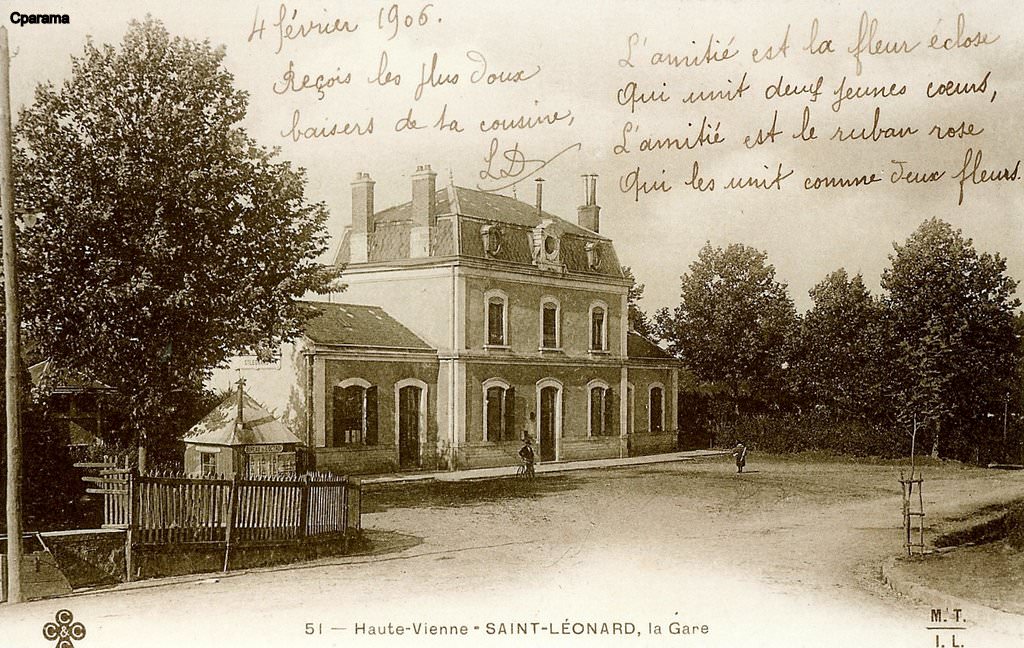 Cparama
4 février 1906.
Reçois les plus doux
baisers de ta cousine,
LD
L'amitié est la fleur éclose
Qui unit deux jeunes cœurs,
L'amitié est le ruban rose
Qui les unit comme deux fleurs.
51 — Haute-Vienne - SAINT-LÉONARD, la Gare
M. T.
I. L.
C C C